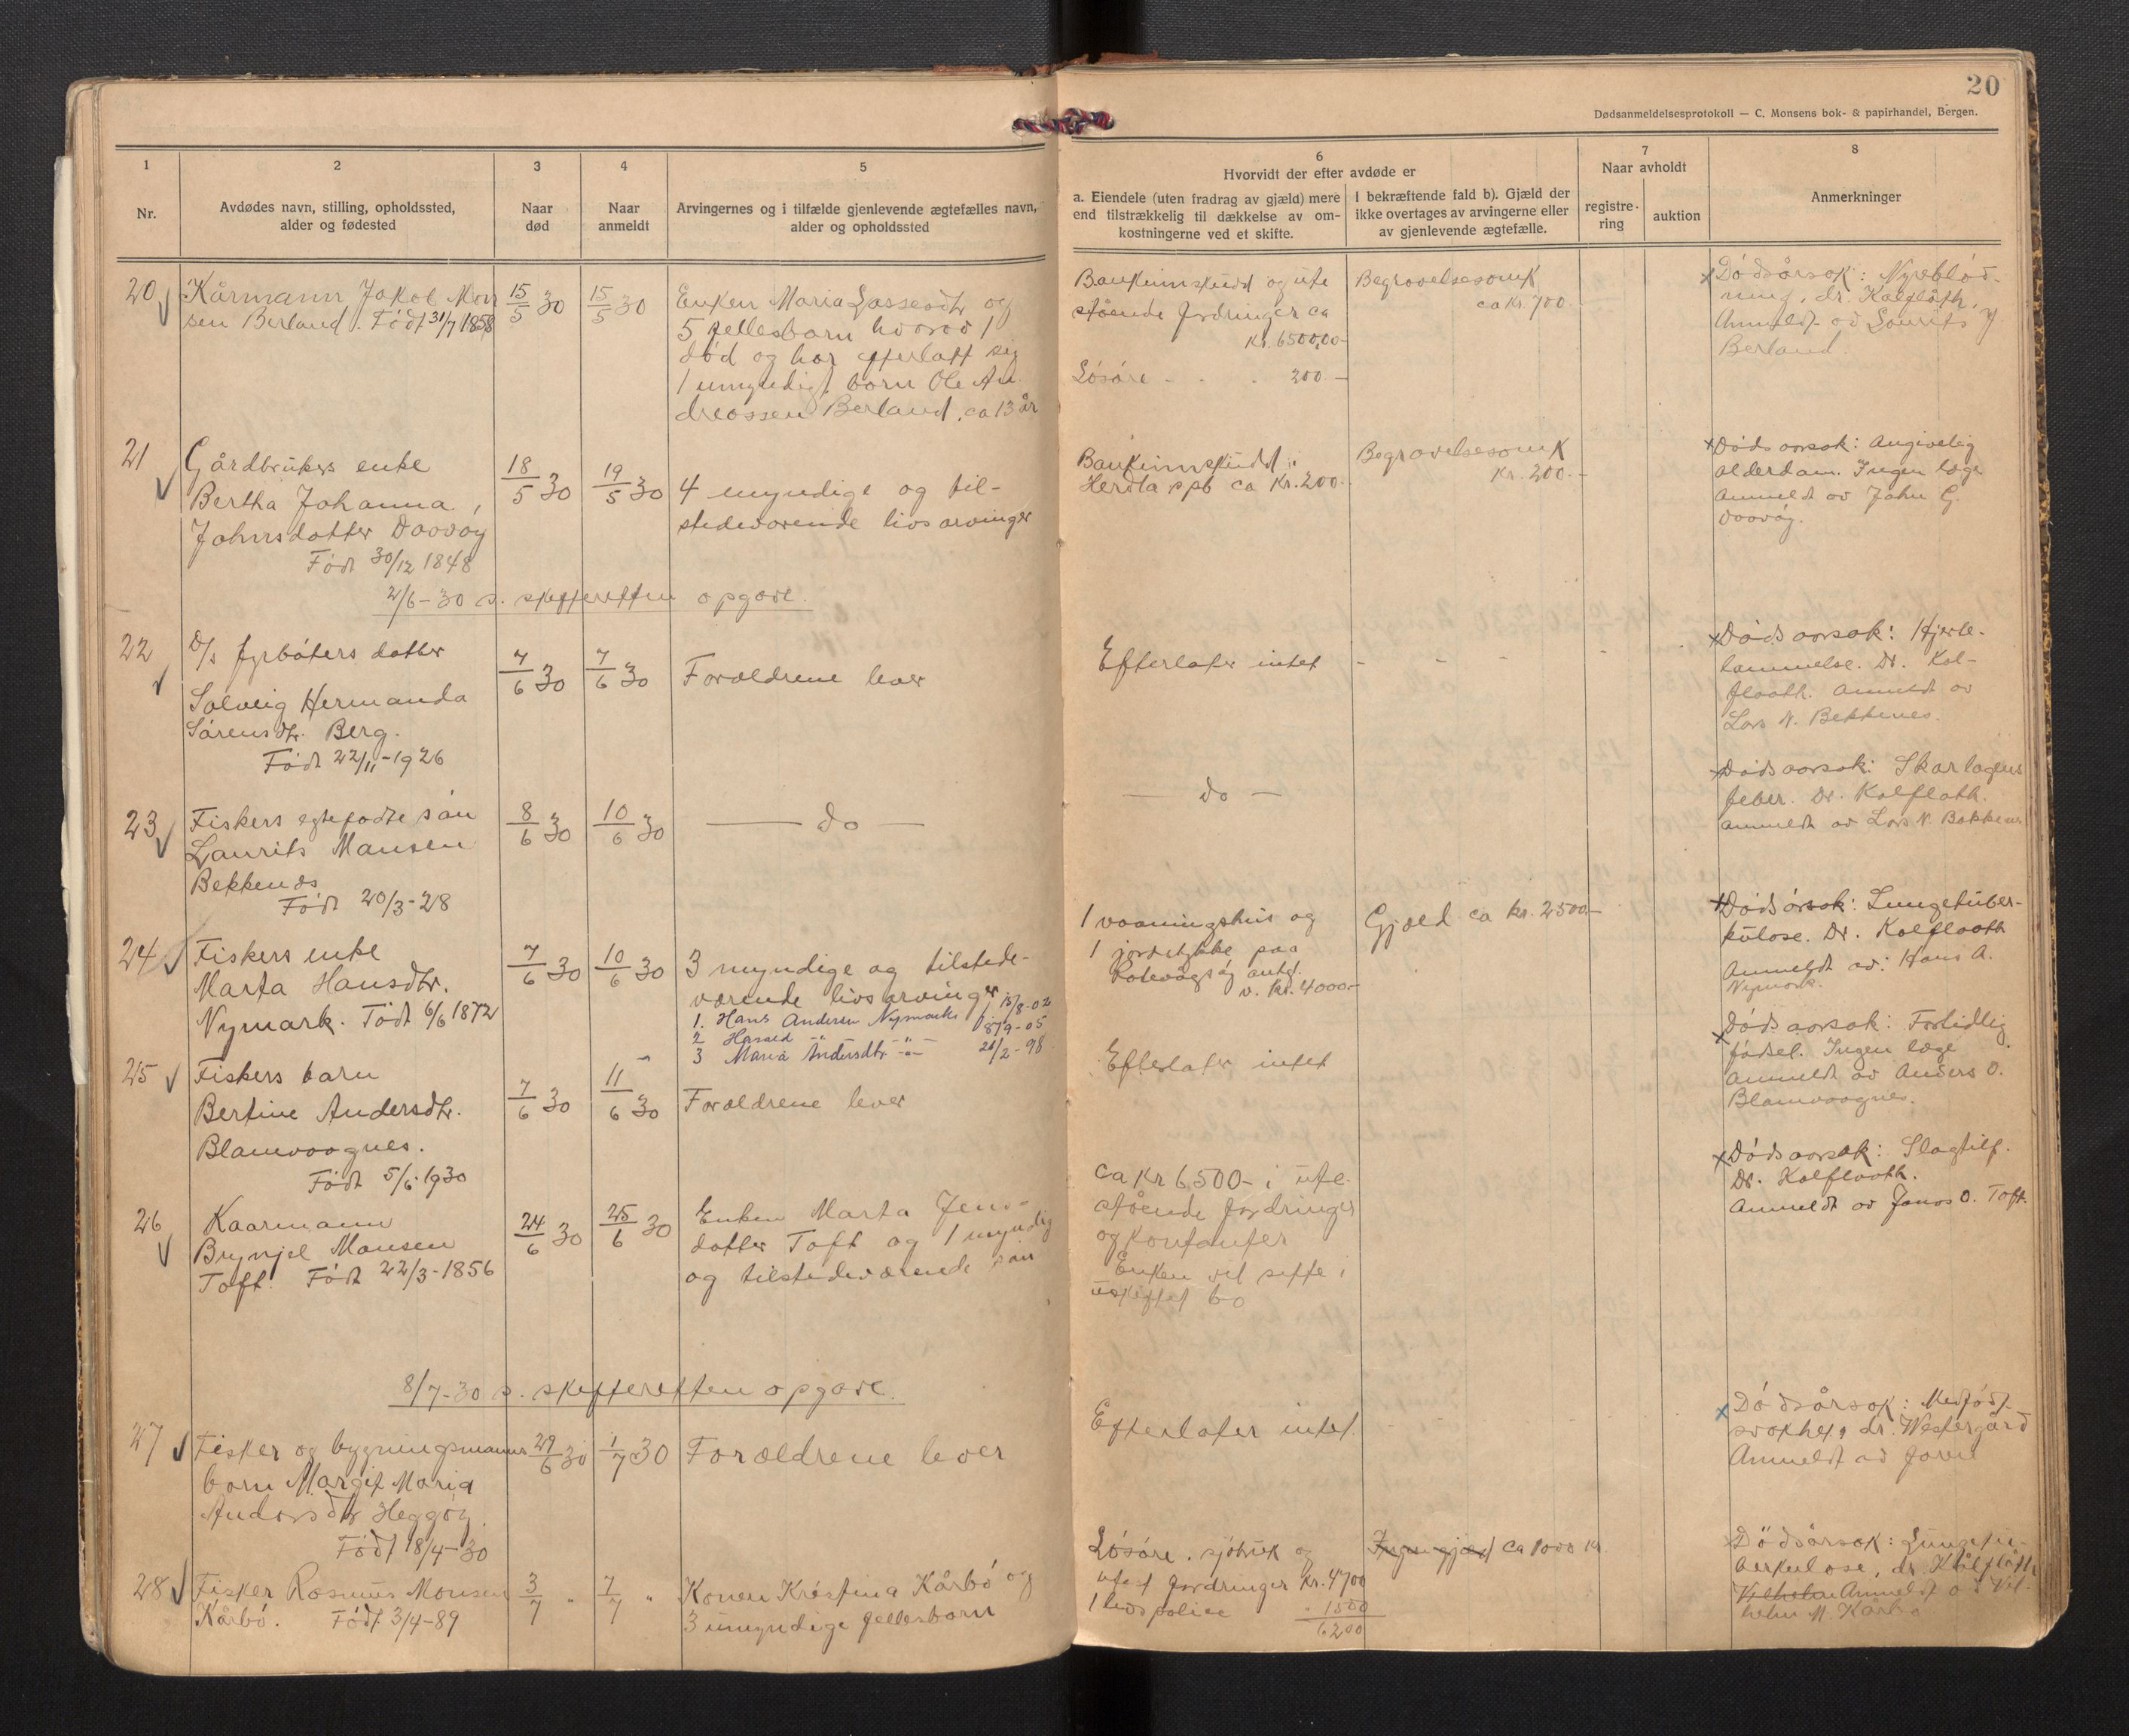 20
Dødsanmeldelsesprotokoll — C. Monsens bok- & papirhandel, Bergen.
1 2 3 4 5 6 7 8
Nr.
Avdødes navn, stilling, opholdssted,
alder og fødested
Naar
død
Naar
anmeldt
Arvingernes og i tilfælde gjenlevende ægtefælles navn,
alder og opholdssted
Hvorvidt der efter avdøde er
a. Eiendele (uten fradrag av gjæld) mere
end tilstrækkelig til dækkelse av om-
kostningerne ved et skifte.
I bekræftende fald b). Gjæld der
ikke overtages av arvingerne eller
av gjenlevende ægtefælle.
Naar avholdt
registre-
ring
auktion
Anmerkninger
20
Kårmann Jakob Mon
sen Berland. Født 31/7 1858
15/5 30
15/5 30
Enken Maria Lassesdtr og
5 fellesbarn hvorav 1
død og har efterlatt sig
1 umyndigt barn Ole An
dreassen Berland, ca 13 år
Bankinnskudd og ute
stående fordringer ca
Kr. 6500,00-
Løsøre - - - 200 -
Begravelsesomk
ca Kr. 700.-
Dødsårsak: Nyreblød-
ning, dr. Kalflåth.
Anmeldt av Laurits J
Berland.
21
Gårdbrukers enke
Bertha Johanna
Johnsdatter Davøy
Født 30/12 1848
18/5 30
19/5 30
4 myndige og til-
stedeværende livsarvinger
Bankinnskudd i
Herdla spb ca Kr. 200.-
Begravelsesomk
Kr. 200.-
Dødsaarsak: Angivelig
alderdom. Ingen læge
Anmeldt av John G.
Davøy.
2/6-30 s. skifteretten opgave.
22
D/s fyrbøters datter
Solveig Hermanda
Sørensdtr. Berg.
Født 22/11-1926
4/6 30
7/6 30
Forældrene lever
Efterlater intet - - - - -
Dødsaarsak: Hjerte-
lammelse. Dr. Kal-
flaath. Anmeldt av
Lars N. Bekkenes.
23
Fiskers egtefødte søn
Laurits Mansen
Bekkenes
Født 20/3-28
8/6 30
10/6 30
— do —
— do —
Dødsaarsak: Skarlagens
feber. Dr. Kalflath.
Anmeldt av Lars N. Bekkenes
24
Fiskers enke
Marta Hansdtr.
Nymark. Født 6/6 1872
7/6 30
10/6 30
3 myndige og tilstede-
værende livsarvinger
1. Hans Andersen Nymark f. 15/8-02
2 Harald -"- -"- 8/9-05
3 Maria Andersdtr -"- 21/2-98
1 vaaningshus og
1 jordstykke paa
Rotevågsøy antat.
v. Kr. 4000.-
Gjæld ca kr. 2500.-
Dødsårsak: Lungetuber-
kulose. Dr. Kalflaath
Anmeldt av: Hans A.
Nymark.
25
Fiskers barn
Bertine Andersdtr.
Blamvaagnes.
Født 5/6 1930
7/6 30
11/6 30
Forældrene lever
Efterlater intet
Dødsaarsak: Fortidlig
fødsel. Ingen læge
Anmeldt av Anders O.
Blamvaagnes.
26
Kaarmann
Brynjel Monsen
Toft. Født 22/3-1856
24/6 30
25/6 30
Enken Marta Jens-
datter Toft og 1 myndig
og tilstedeværende søn
Ca Kr 6500- i ute-
stående fordringer
og kontanter
Enken vil sitte i
uskiftet bo
Dødsaarsak: Slagtilf.
Dr. Kalflaath.
Anmeldt av Jonas O. Toft.
8/7-30 s. skifteretten opgave.
27
Fisker og bygningsmanns
barn Margit Maria
Andersdtr Heggøy.
Født 18/4-30
29/6 30
1/7 30
Forældrene lever
Efterlater intet. - -
Dødsårsak: Medfødt
svakhet, dr. Westergård
Anmeldt av faren
28
Fisker Rasmus Monsen
Kårbø. Født 3/4-89
3/7 "
7/7 "
Konen Kristina Kårbø og
3 umyndige fellesbarn
Løsøre. sjøbruk og
utest fordringer Kr. 4700
1 livspolice " 1500
6200
Ingen gjæld ca 1000 kr.
Dødsårsak: Lungetu-
berkulose, dr. Kalflåth
Vilhelm Anmeldt av Vil-
helm M. Kårbø